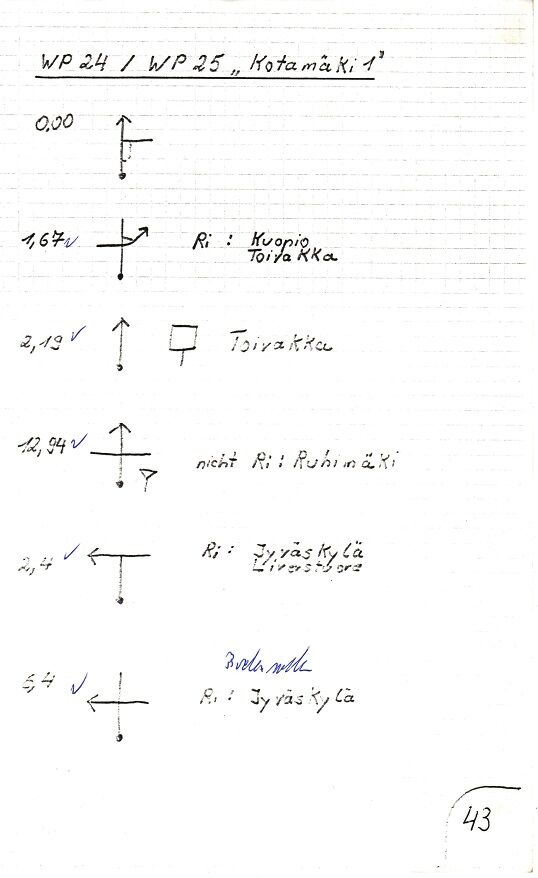 WP 24 / WP 25 „Kotamäki 1"
0,00
1,67 Ri : Kuopio
Toivakka
2,19 Toivakka
12,94 nicht Ri : Ruhimäki
2,4 Ri : Jyväskylä
Lievestuore
6,4 Ri : Jyväskylä
43